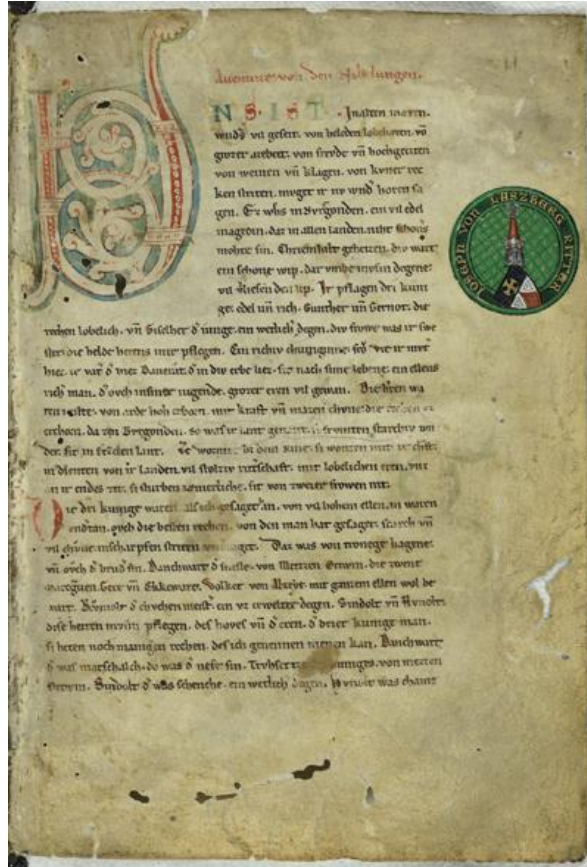 Auenture von den Nibelungen.
NS. IST. In alten mæren.
wnds vil geseit. von heleden lobebæren. vō
grozer arebeit. von frevde vn̄ hochgeciten
von weinen vn̄ klagen. von kvner rec
ken striten. mvget ir nv wnd horen sa
gen. Ez whs in Bvrgonden. ein vil edel
magedin. daz in allen landen. niht schoners
mohte sin. Chriemhilt geheizen. div wart
ein schone wip. dar vmbe mvsin degene
vil vliesen den lip. Ir pflagen dri kuni
ge. edel vn̄ rich. Gunther vn̄ Gernot. die
rechen lobelich. vn̄ Giselher d iunge. ein wetlich degen. div frowe was ir swe
ster. die helde hetens inir pflegen. Ein richiv chuniginne. frō ir mvter
hiez. ir vater d hiez Dancrat. d in div erbe liez. sit nach sime lebene. ein ellens
rich man. d ovch in siner iugende. grozer eren vil gewan. Die h'ren wa
ren milte. von arde hoh erborn. mit kraft vn̄ mazen chvne. die
erchorn. da zen Bregonden. so was ir lant genant. si frvmten starchiv wn
der. sit in Etzelen lant. Ze wormz. bi dem Rine. si wonten mit ir chraft.
in dienten von ir landen. vil stolziv ritterschaft. mit lobelichen eren. vnz
an ir endes zit. si sturben iæmerliche. sit von zweier frowen nit.
Die dri kunige waren. als ich gesaget han. von vil hohem ellen. in waren
vndertan. ovch die besten rechen. von den man hat gesaget. starch vn̄
vil chvne. in scharpfen striten vnverzaget. Daz was von tronege Hagene.
vn̄ ovch d brud sin. Danchwart d snelle. von Metzen Ortwin. die zwene
marcgraven. Gere vn̄ Ekkewart. Volker von Alzeye. mit ganzem ellen wol be
wart. Rvmolt d chvchen meist. ein vz erwelter degen. Sindolt vn̄ Hvnolt.
dise herren mvsin pflegen. des hoves vn̄ d eren. d drier kunige man.
si heten noch manigen rechen. des ich genennen nienen kan. Danchwart
d was marschalch. do was d nefe sin. Trvhsetze kuniges. von metzen
Ortwin. Sindolt d was schenche. ein wetlich degen. Hvnolt was cham
JOSEPH VON LASZBERG RITTER